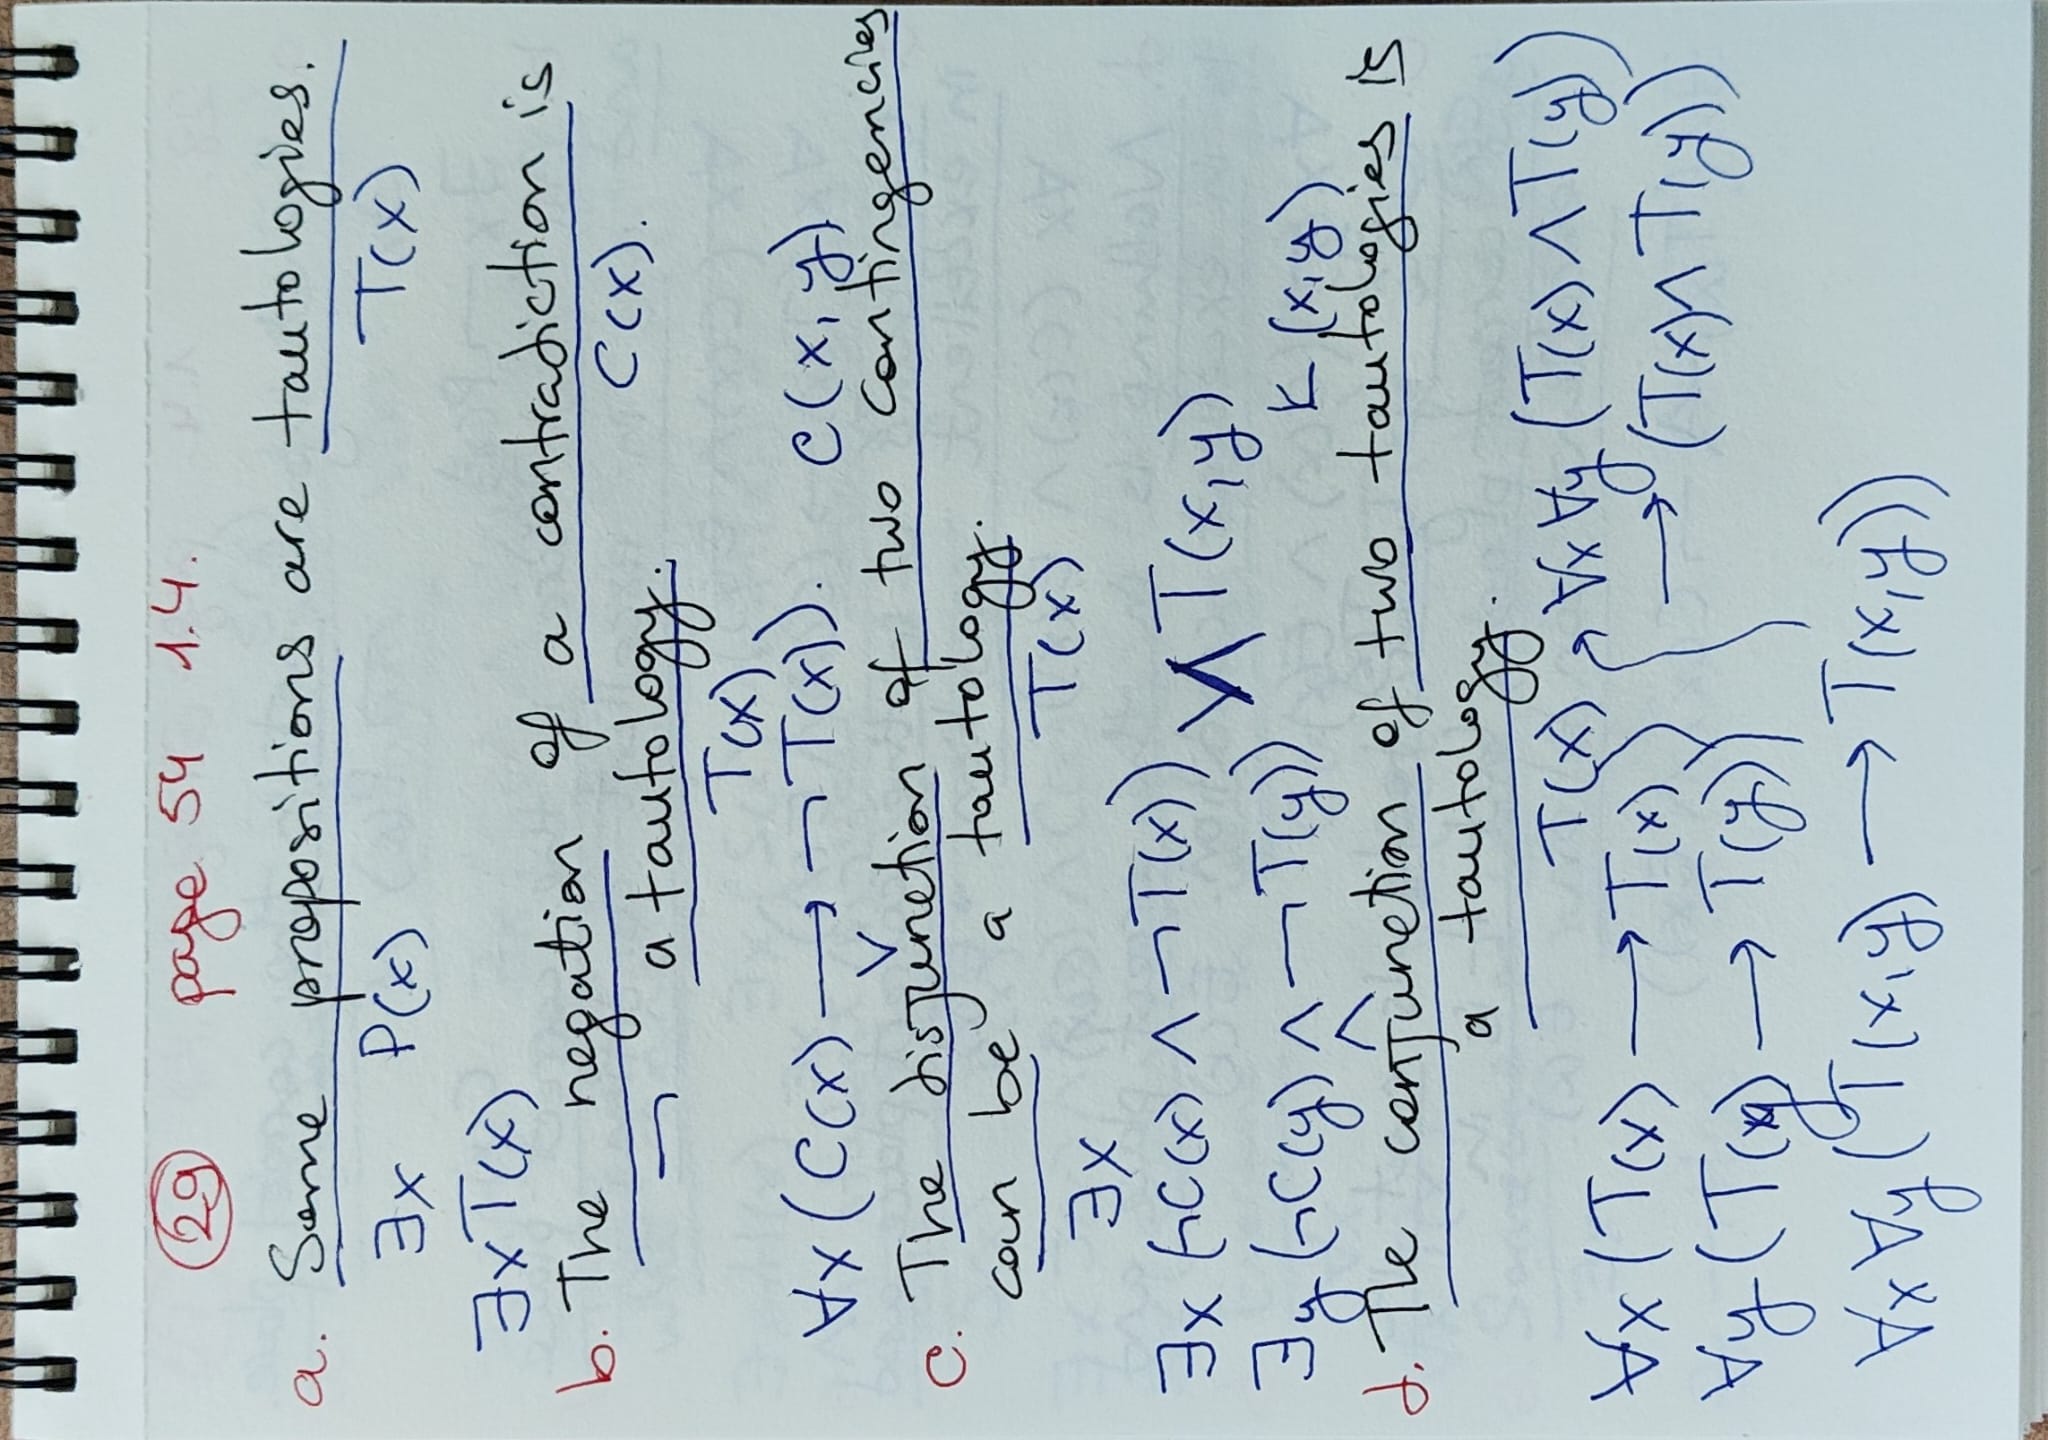 29 page 54 1.4.
a. Some propositions are tautologies.
∃x P(x) T(x)
∃xT(x)
b. The negation of a contradiction is
¬ a tautology. C(x).
T(x)
∀x (C(x) → ¬T(x)). C(x,y)
∨
c. The disjunction of two contingencies
can be a tautology.
∃x T(x)
∃x (¬C(x) ∧ ¬T(x)) ∨ T(x,y)
∃y (¬C(y) ∧ ¬T(y)) K(x,y)
∧
d. The conjunction of two tautologies is
a tautology.
T(x) ∀x ∀y (T(x) ∧ T(y)
∀x (T(x) → T(x) → (T(x) ∧ T(y))
∀y (T(x) → T(y))
∀x ∀y (T(x,y) → T(x,y))